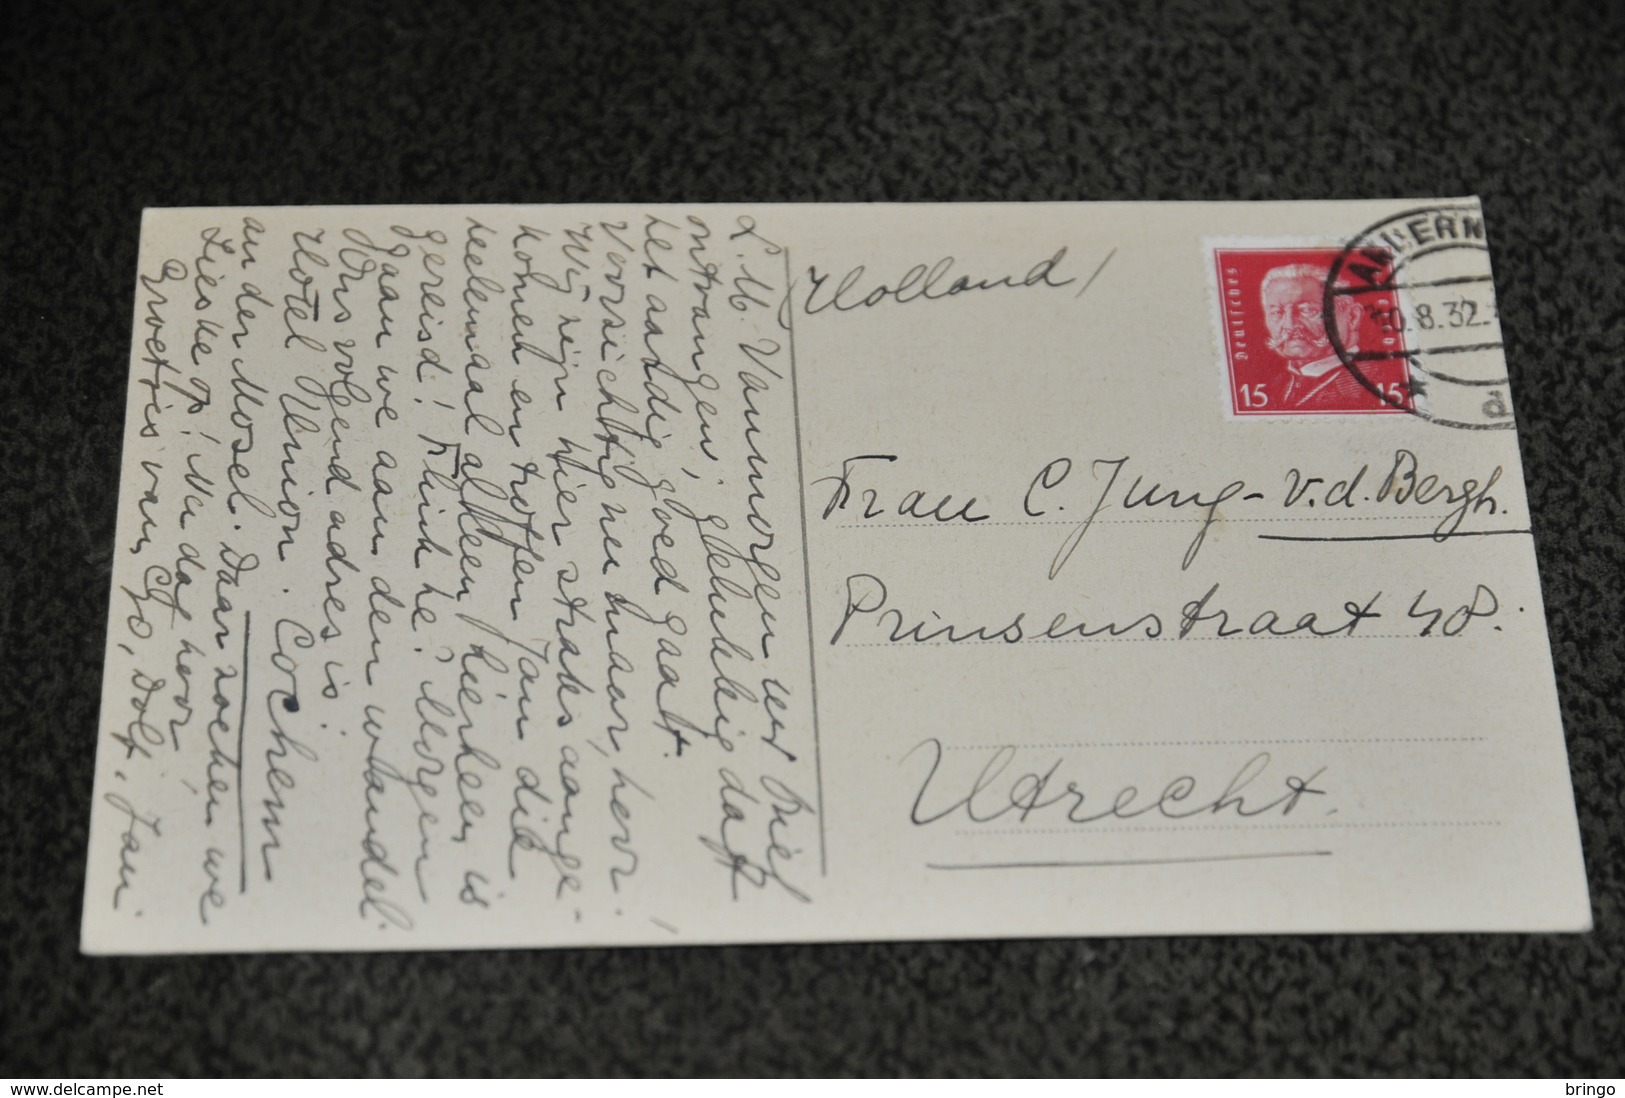 L. M. Vanmorgen uw brief
ontvangen, gelukkig dat
het aardig goed gaat.
Voorzichtig nu maar, hoor!
Wij zijn hier straks aange-
komen en troffen Jan die
heelemaal alleen hierheen is
gereisd! Flink he? Morgen
gaan we aan den wandel.
Ons volgend adres is:
Hotel Union. Cochem
an der Mosel. Daar zoeken we
Lieske op! Nu dag hoor,
Groetjes van, Co, Dolf, Jan
Holland/
Deutsches
15
15
ANDERN
10.8.32.
Frau C. Jung-v.d. Bergh.
Prinsenstraat 48.
Utrecht.
www.delcampe.net
bringo